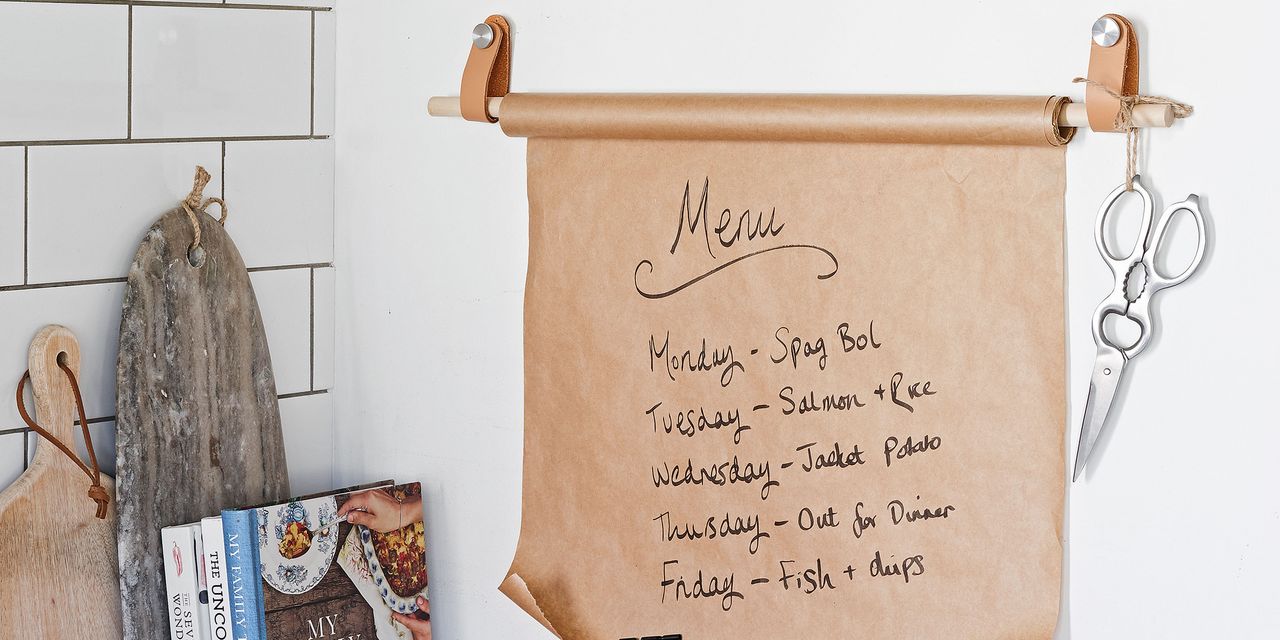 Menu
Monday - Spag Bol
Tuesday - Salmon + Rice
Wednesday - Jacket Potato
Thursday - Out for Dinner
Friday - Fish + chips
THE SEV
WOND
THE UNCO
MY FAMILY
MY